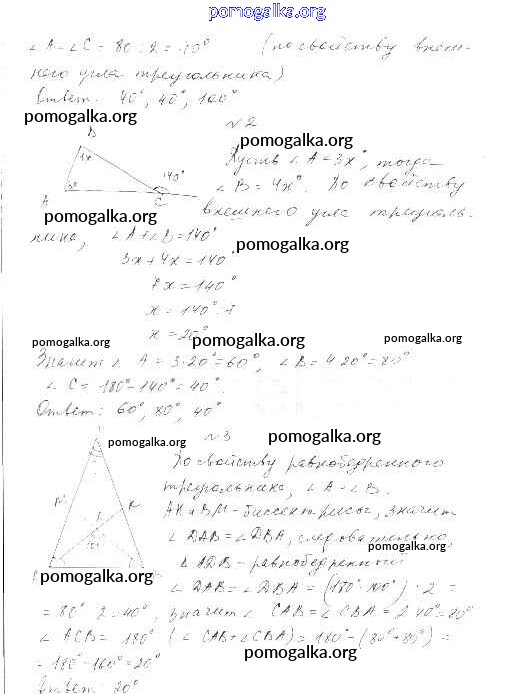 pomogalka.org
∠A=∠C = 80 : 2 = 40° (по свойству внеш-
него угла треугольника)
Ответ: 40°, 40°, 100°
pomogalka.org
№2
B pomogalka.org
4x 140° Пусть ∠A=3x°, тогда
3x° ∠B=4x°. По свойству
A C
pomogalka.org внешнего угла треуголь-
ника, ∠A+∠B=140° pomogalka.org
3x+4x=140°
7x=140°
x=140°:7
x=20°
pomogalka.org pomogalka.org pomogalka.org
Значит ∠A=3·20°=60°, ∠B=4·20°=80°
∠C=180°-140°=40°.
Ответ: 60°, 80°, 40°
pomogalka.org №3 pomogalka.org
По свойству равнобедренного
треугольника, ∠A=∠B.
M K AK и BM - биссектрисы, значит
∠DAB=∠DBA, следовательно,
pomogalka.org
100° ∠ADB - равнобедренный
pomogalka.org
∠DAB=∠DBA=(180°-100°):2=
=80°:2=40°, значит ∠CAB=∠CBA=2·40°=80°
∠ACB=180°-(∠CAB+∠CBA)=180°-(80°+80°)=
=180°-160°=20°
pomogalka.org
Ответ: 20°